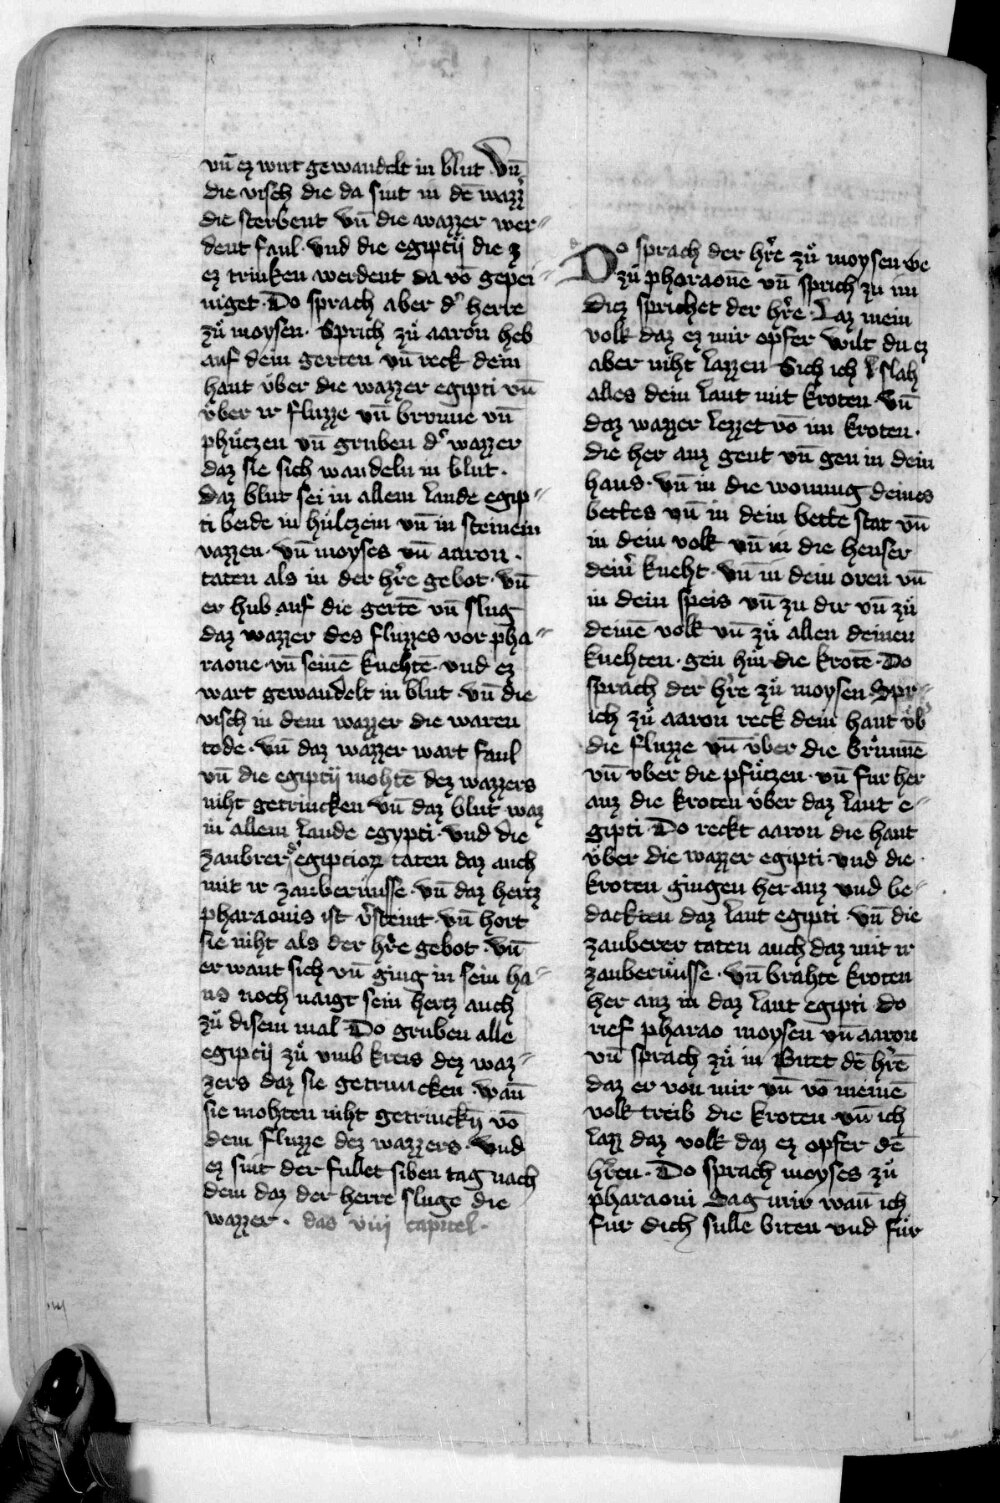 vn̄ ez wirt gewandelt in blut · Vn̄
die visch die da sint in dē wazz͛
die sterbent vn̄ die wazzer wer⸗
dent faul · vnd die egiptij die z
ez trinken werdent da vō gepei⸗
niget · Do sprach aber d͛ herre
zů moysen · Sprich zů aaron heb
auf dein gerten vn̄ reck dein
hant ůber die wazzer egipti vn̄
ůber ir fluzze vn̄ brunne vn̄
phůczen vn̄ gruben d͛ wazzer
daz sie sich wandeln in blut ·
daz blut sei in allem lande egip⸗
ti beide in hůlczein vn̄ in steinein
vazzen · vn̄ moyses vn̄ aaron ·
taten als in der hr̄e gebot · vn̄
er hub auf die gertē vn̄ slug
daz wazzer des fluzzes vor pha⸗
raone · vn̄ seinē knehtē · vnd ez
wart gewandelt in blut · vn̄ die
visch in dem wazzer die waren
tode · vn̄ daz wazzer wart faul
vn̄ die egiptij mohtē dez wazzers
niht getrincken vn̄ daz blut waz
in allem lande egypti · vnd die
zaubrer d͛ egipcioꝝ taten daz auch
mit ir zaubernisse · vn̄ daz hertz
pharaonis ist v͛steint · vn̄ hort
sie niht als der hr̄e gebot · vn̄
er want sich vn̄ ging in sein ha⸗
us noch naigt sein hertz auch
zů disem mal · Do gruben alle
egiptij zů vmb kreis dez waz⸗
zers daz sie getrincken · wan̄
sie mohten niht getrinckn̄ vō
dem fluzze dez wazzers · vnd
ez sint der fullet siben tag nach
dem daz der herre sluge die
wazzer · das viij capitel ·
Do sprach der hr̄e zů moysen ge
zů pharaone vn̄ sprich zu im
Diez sprichet der hr̄e · Laz mein
volk daz ez mir opfer wilt du ez
aber niht lazzen Sich ich slah
alles dein lant mit kroten · vn̄
daz wazzer lezzet vō im kroten ·
die her auz gent vn̄ gen in dein
haus · vn̄ in die wonung deines
bettes vn̄ in dein bette stat vn̄
in dein volk vn̄ in die heuser
dein͛ kneht · vn̄ in dein oven vn̄
in dein speis vn̄ zu dir vn̄ zů
deinē volk vn̄ zů allen deinen
knehten · gen hin die krotē · Do
sprach der hr̄e zů moysen · Spr⸗
ich zů aaron reck dein hant ůb͛
die fluzze vn̄ ůber die brůnnē
vn̄ vber die pfůtzen · vn̄ fur her
auz die kroten ůber daz lant e⸗
gipti · Do reckt aaron die hant
ůber die wazzer egipti · vnd die ·
kroten gingen her auz vnd be⸗
dackten daz lant egipti · vn̄ die
zauberer taten auch daz mit ir
zaubernůsse · vn̄ brahte kroten
her auz in daz lant egipti · do
rief pharao moysen vn̄ aaron
vn̄ sprach zů in Bitet dē hr̄ē
daz er von mir vn̄ vō meinē
volk treib die kroten · vn̄ ich
lazz daz volk daz ez opfer dē
hr̄en · Do sprach moyses zů
pharaoni Sag mir wan̄ ich
fur dich sulle biten vnd fůr